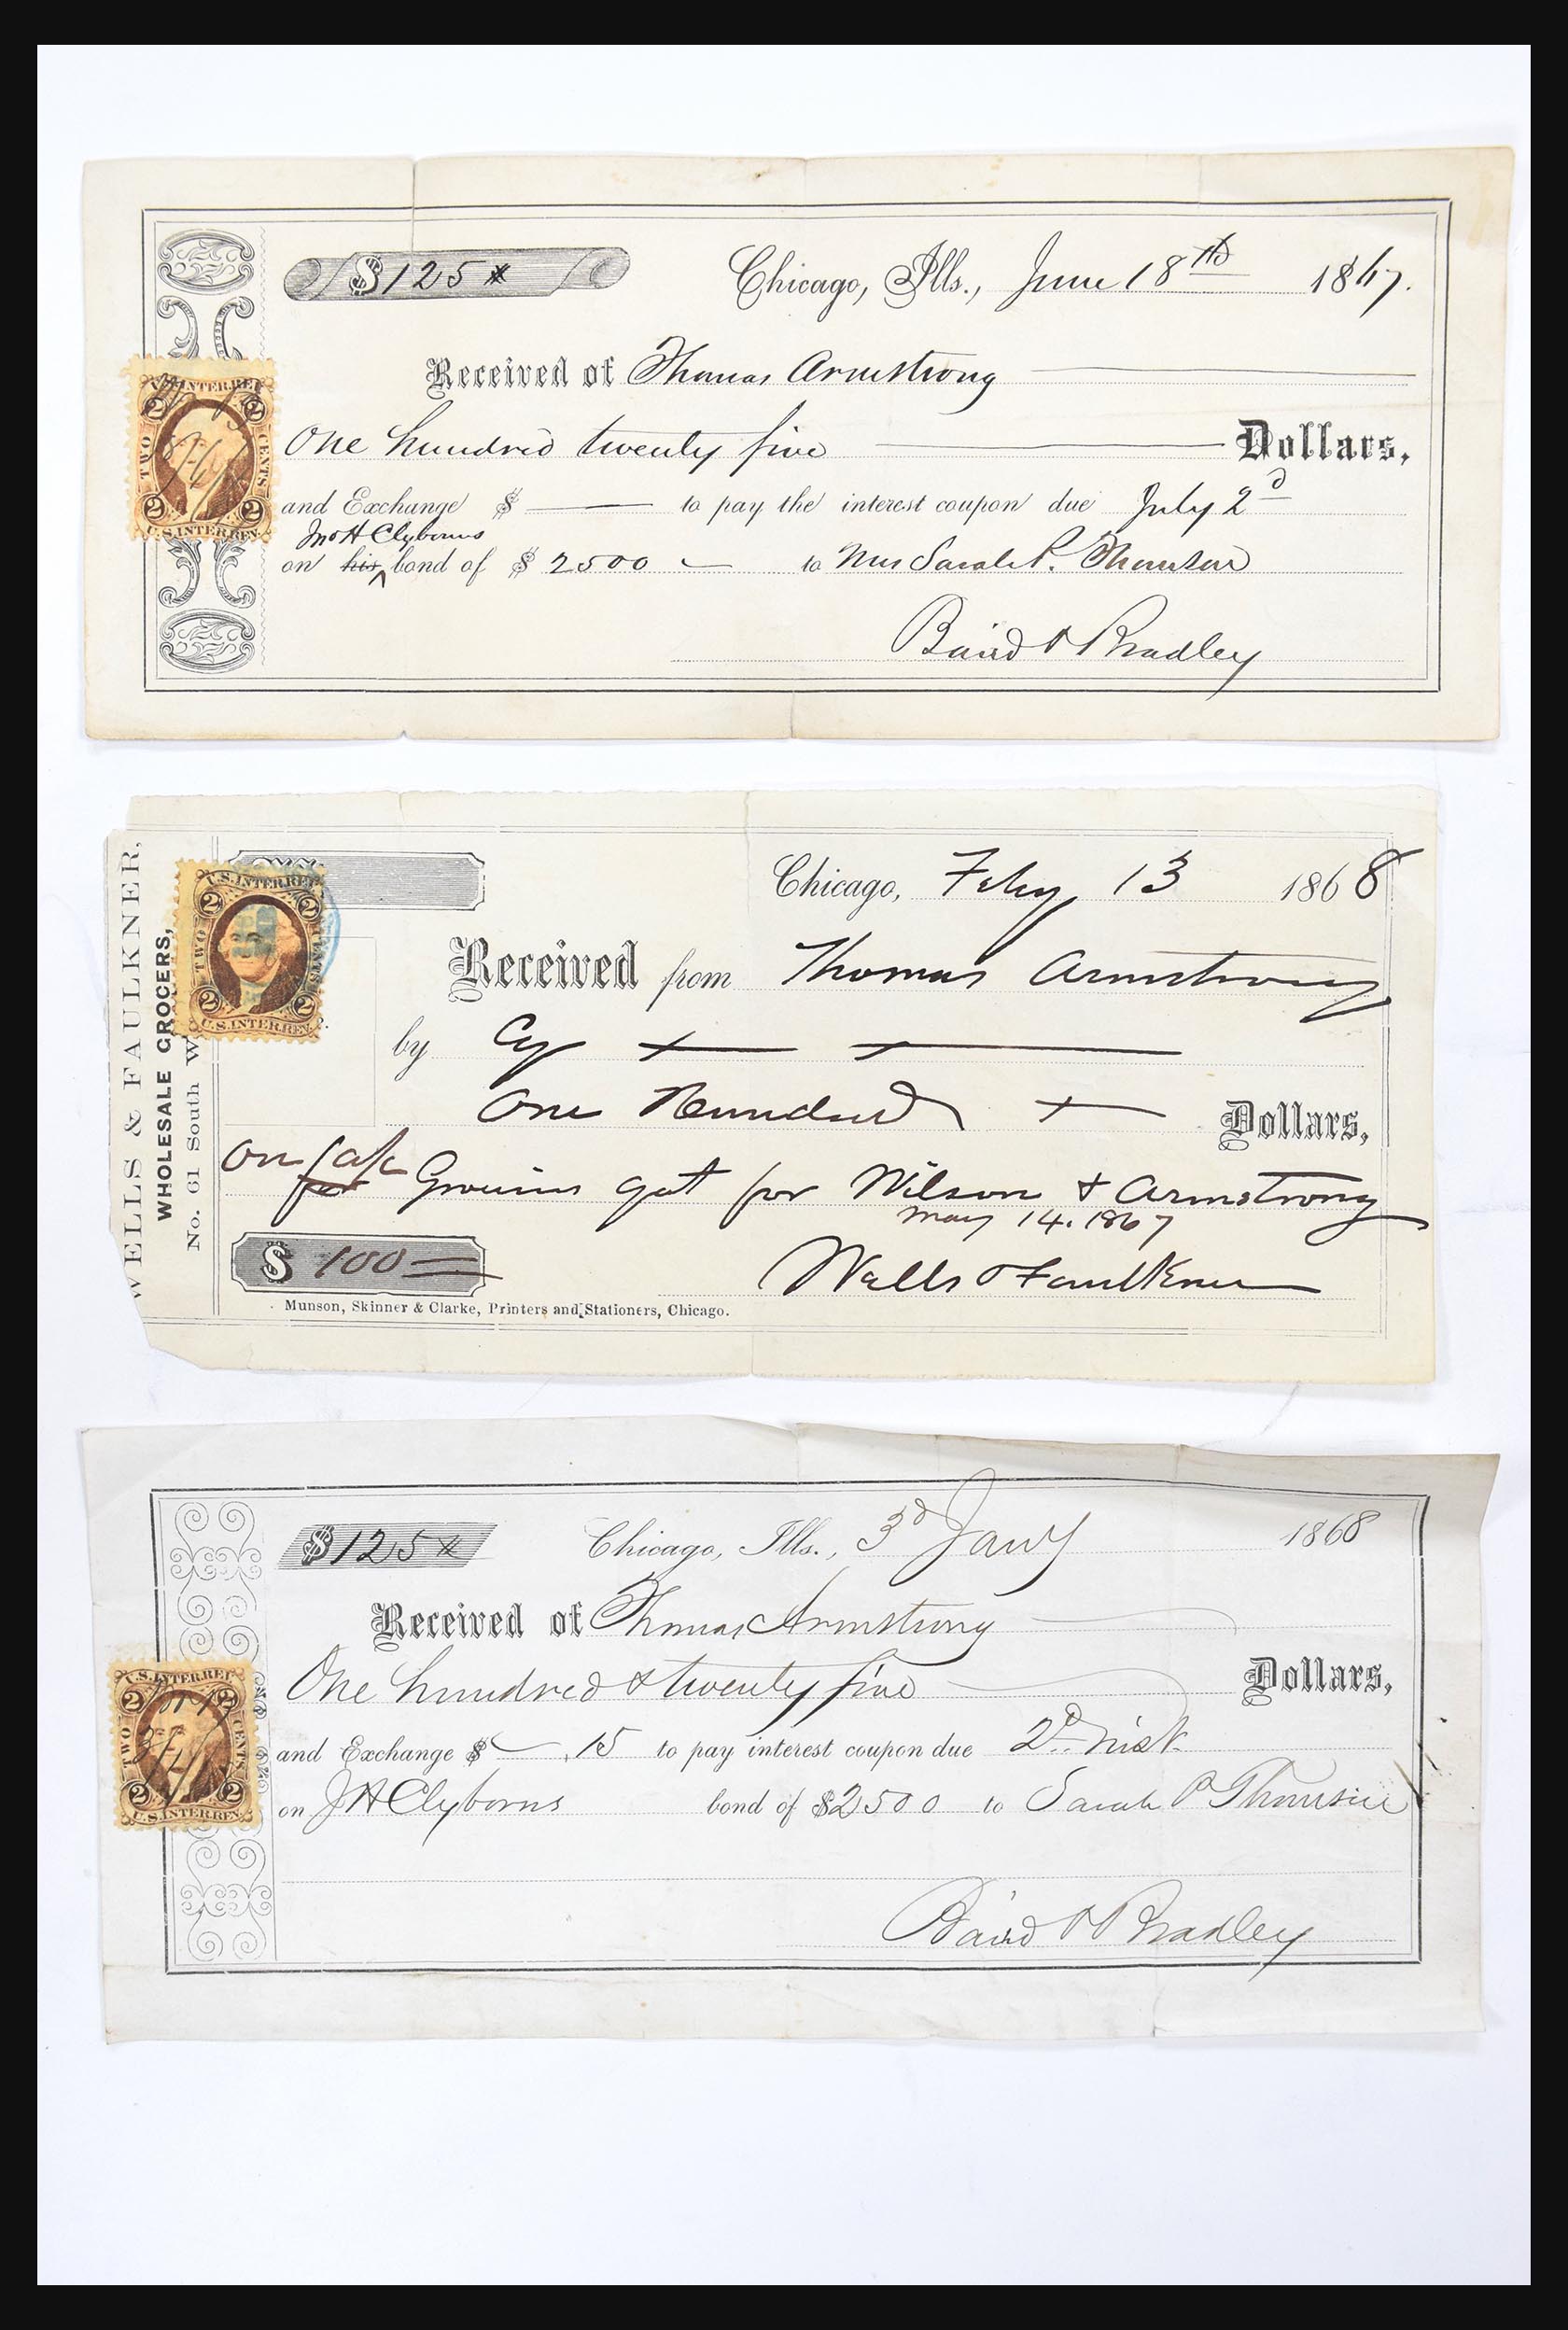 $125
Chicago, Ills., June 18th 1867.
Received of Thomas Armstrong
One hundred twenty five Dollars,
and Exchange $ to pay the interest coupon due July 2d
Jno H Clyborns
on his bond of $ 2500 to Mrs Sarah P. Thomson
Baird & Bradley
U.S. INTER. REV.
2 2
TWO CENTS
2 2
U.S. INTER. REV.
WELLS & FAULKNER,
WHOLESALE GROCERS,
No. 61 South W
U.S. INTER. REV.
2 2
TWO CENTS
2 2
U.S. INTER. REV.
Chicago, Feby 13 1868
Received from Thomas Armstrong
by Cy
One Hundred Dollars,
On a/c
for Groceries got for Wilson & Armstrong
May 14. 1867
$ 100
Wells & Faulkner
Munson, Skinner & Clarke, Printers and Stationers, Chicago.
$125
Chicago, Ills., 3d Jany 1868
Received of Thomas Armstrong
One hundred & twenty five Dollars,
and Exchange $ .15 to pay interest coupon due 2d inst.
on J H Clyborns bond of $2500 to Sarah P Thomson
Baird & Bradley
U.S. INTER. REV.
2 2
TWO CENTS
2 2
U.S. INTER. REV.